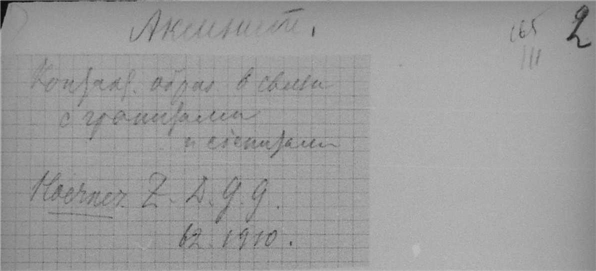 Аксинит.
165
III
2
Контакт. образ. в связи
с гранитами
и сиенитами
Z. D. g. g.
62. 1910.